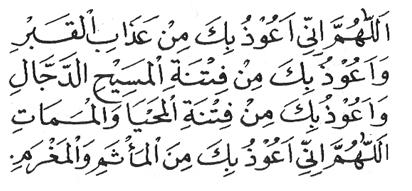 اَللّٰهُمَّ اِنِّي اَعُوْذُ بِكَ مِنْ عَذَابِ الْقَبْرِ
وَاَعُوْذُ بِكَ مِنْ فِتْنَةِ الْمَسِيْحِ الدَّجَّالِ
وَاَعُوْذُ بِكَ مِنْ فِتْنَةِ الْمَحْيَا وَالْمَمَاتِ
اَللّٰهُمَّ اِنِّي اَعُوْذُ بِكَ مِنَ الْمَأْثَمِ وَالْمَغْرَمِ.